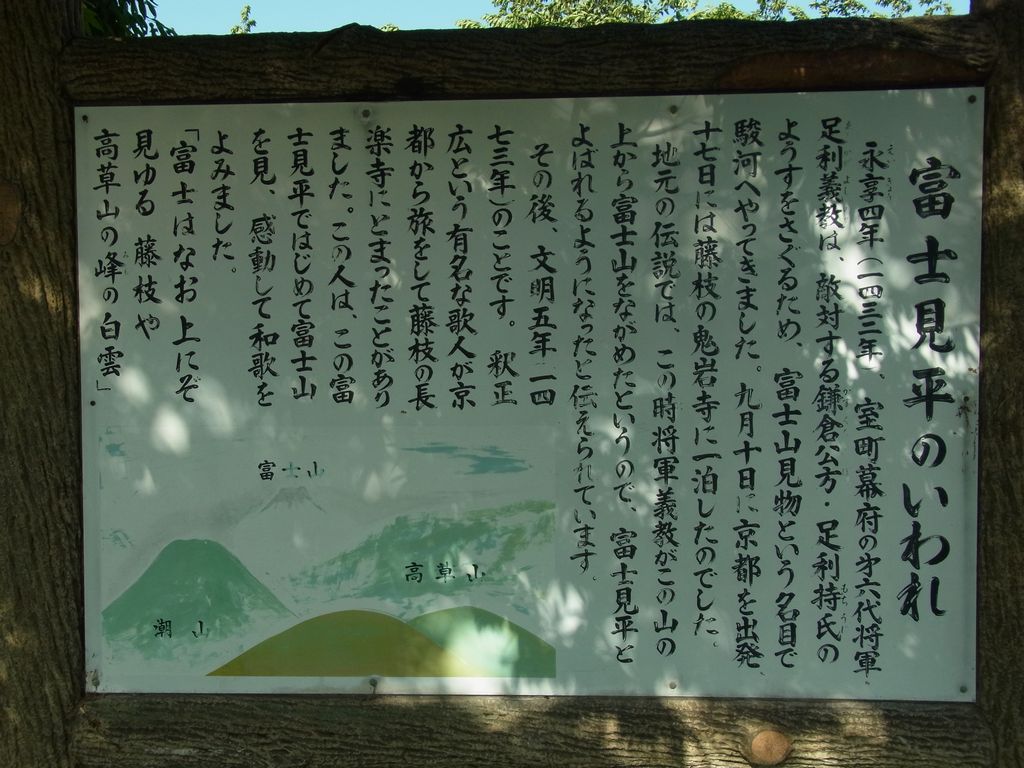 富士見平のいわれ
永享四年(一四三二年)、室町幕府の第六代将軍
足利義教は、敵対する鎌倉公方・足利持氏の
ようすをさぐるため、富士山見物という名目で
駿河へやってきました。九月十日に京都を出発、
十七日には藤枝の鬼岩寺に一泊したのでした。
地元の伝説では、この時将軍義教がこの山の
上から富士山をながめたというので、富士見平と
よばれるようになったと伝えられています。
その後、文明五年(一四
七三年)のことです。釈正
広という有名な歌人が京
都から旅をして藤枝の長
楽寺にとまったことがあり
ました。この人は、この富
士見平ではじめて富士山
を見、感動して和歌を
よみました。
「富士はなお上にぞ
見ゆる 藤枝や
高草山の峰の白雲」
富士山
高草山
潮山